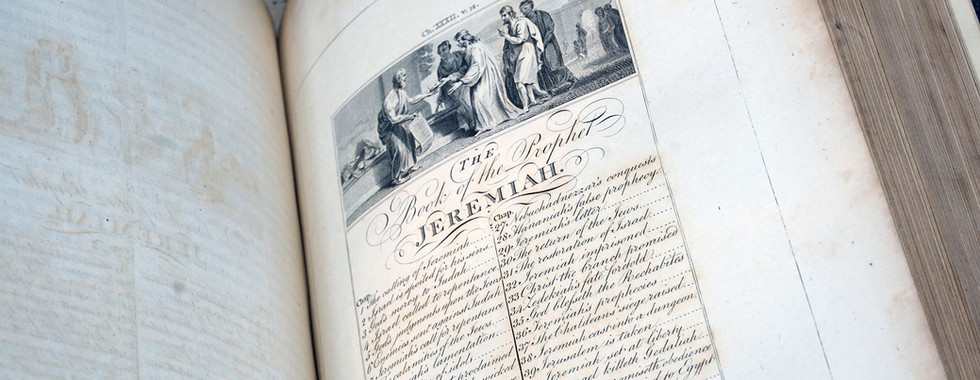 Ch. XXXII. v.
THE
Book of the Prophet
JEREMIAH.
Chap.
The calling of Jeremiah
Israel is spoiled for his sins
God's mercy to Judah
Israel called to repentance
God's judgments upon the Jews
sent against Judah
Jeremiah's call for repentance
Calamities of the Jews
Jeremiah's lamentation
of idols
Chap.
27. Nebuchednezzar's conquests
28. Hananiah's false prophecy
29. Jeremiah's letter
30. The return of the Jews
31. The restoration of Israel
32. Jeremiah imprisoned
33. Christ the branch promised
34. Zedekiah's fate foretold
35. God blesseth the Rechabites
36. Jeremiah's prophecies
37. The Chaldeans siege raised
38. Jeremiah cast into a dungeon
39. Jerusalem is taken
Jeremiah set at liberty
killeth Gedaliah
promiseth obedience
to Egypt